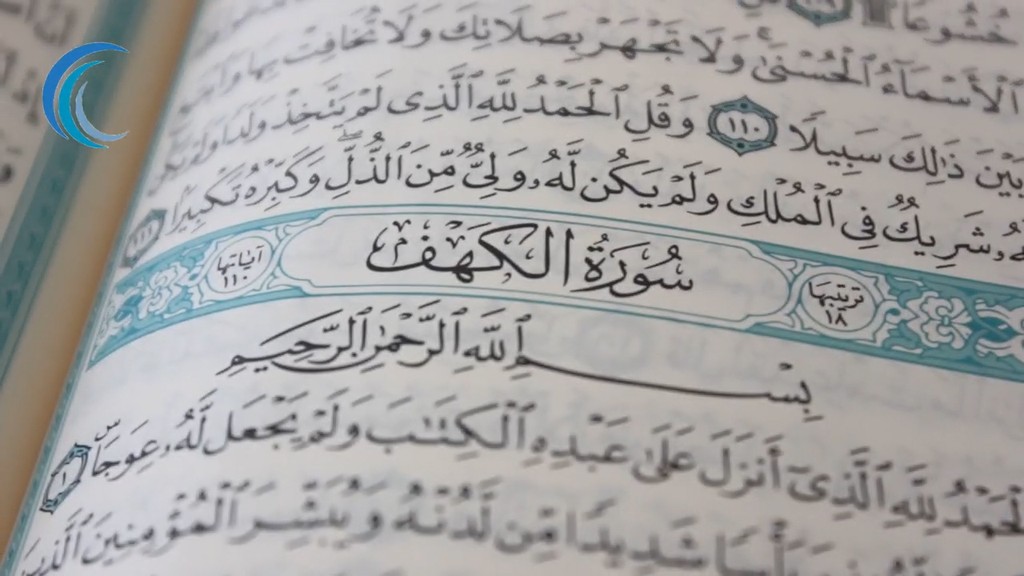 خُشُوعًا
ٱلْأَسْمَآءُ ٱلْحُسْنَىٰ وَلَا تَجْهَرْ بِصَلَاتِكَ وَلَا تُخَافِتْ بِهَا
بَيْنَ ذَٰلِكَ سَبِيلًا ١١٠ وَقُلِ ٱلْحَمْدُ لِلَّهِ ٱلَّذِى لَمْ يَتَّخِذْ وَلَدًا وَلَمْ يَكُن
شَرِيكٌ فِى ٱلْمُلْكِ وَلَمْ يَكُن لَّهُۥ وَلِىٌّ مِّنَ ٱلذُّلِّ ۖ وَكَبِّرْهُ تَكْبِيرًا ١١١
ترتيبها ١٨ سُورَةُ الكَهْفِ آياتها ١١٠
بِسْمِ ٱللَّهِ ٱلرَّحْمَٰنِ ٱلرَّحِيمِ
ٱلْحَمْدُ لِلَّهِ ٱلَّذِىٓ أَنزَلَ عَلَىٰ عَبْدِهِ ٱلْكِتَٰبَ وَلَمْ يَجْعَل لَّهُۥ عِوَجَاۜ ١
بَأْسًا شَدِيدًا مِّن لَّدُنْهُ وَيُبَشِّرَ ٱلْمُؤْمِنِينَ ٱلَّذِينَ